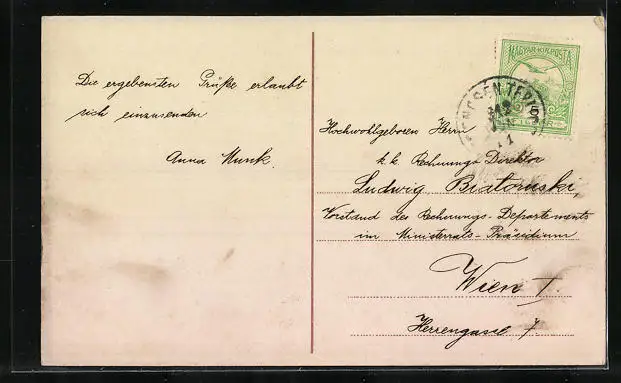 Die ergebensten Grüße erlaubt
sich einzusenden
Anna Munk.
MAGYAR KIR. POSTA
TRENCSÉN-TEPLICZ
912
JUN
5
Hochwohlgeboren Herrn
k.k. Rechnungs Direktor
Ludwig Biatoruski,
Vorstand des Rechnungs-Departements
im Ministerrats-Präsidium
Wien I.
Herrengasse 7.